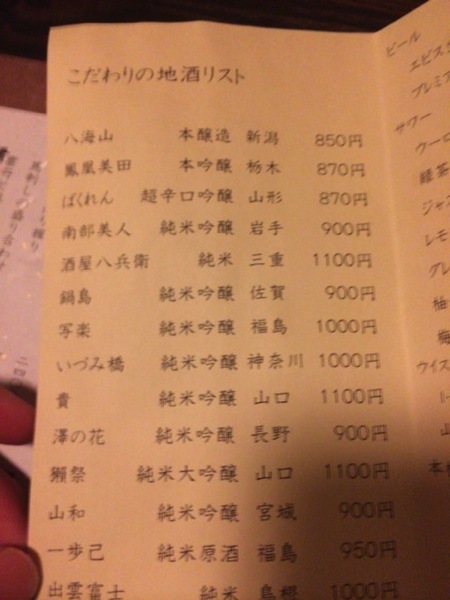 こだわりの地酒リスト
八海山 本醸造 新潟 850円
鳳凰美田 本吟醸 栃木 870円
ばくれん 超辛口吟醸 山形 870円
南部美人 純米吟醸 岩手 900円
酒屋八兵衛 純米 三重 1100円
鍋島 純米吟醸 佐賀 900円
写楽 純米吟醸 福島 1000円
いづみ橋 純米吟醸 神奈川 1000円
貴 純米吟醸 山口 1100円
澤の花 純米吟醸 長野 900円
獺祭 純米大吟醸 山口 1100円
山和 純米吟醸 宮城 900円
一歩己 純米原酒 福島 950円
出雲富士 純米 島根 1000円
ビール
エビス
プレミア
サワー
ウーロ
緑茶
ジャス
レモ
グレ
柚
梅
ウイス